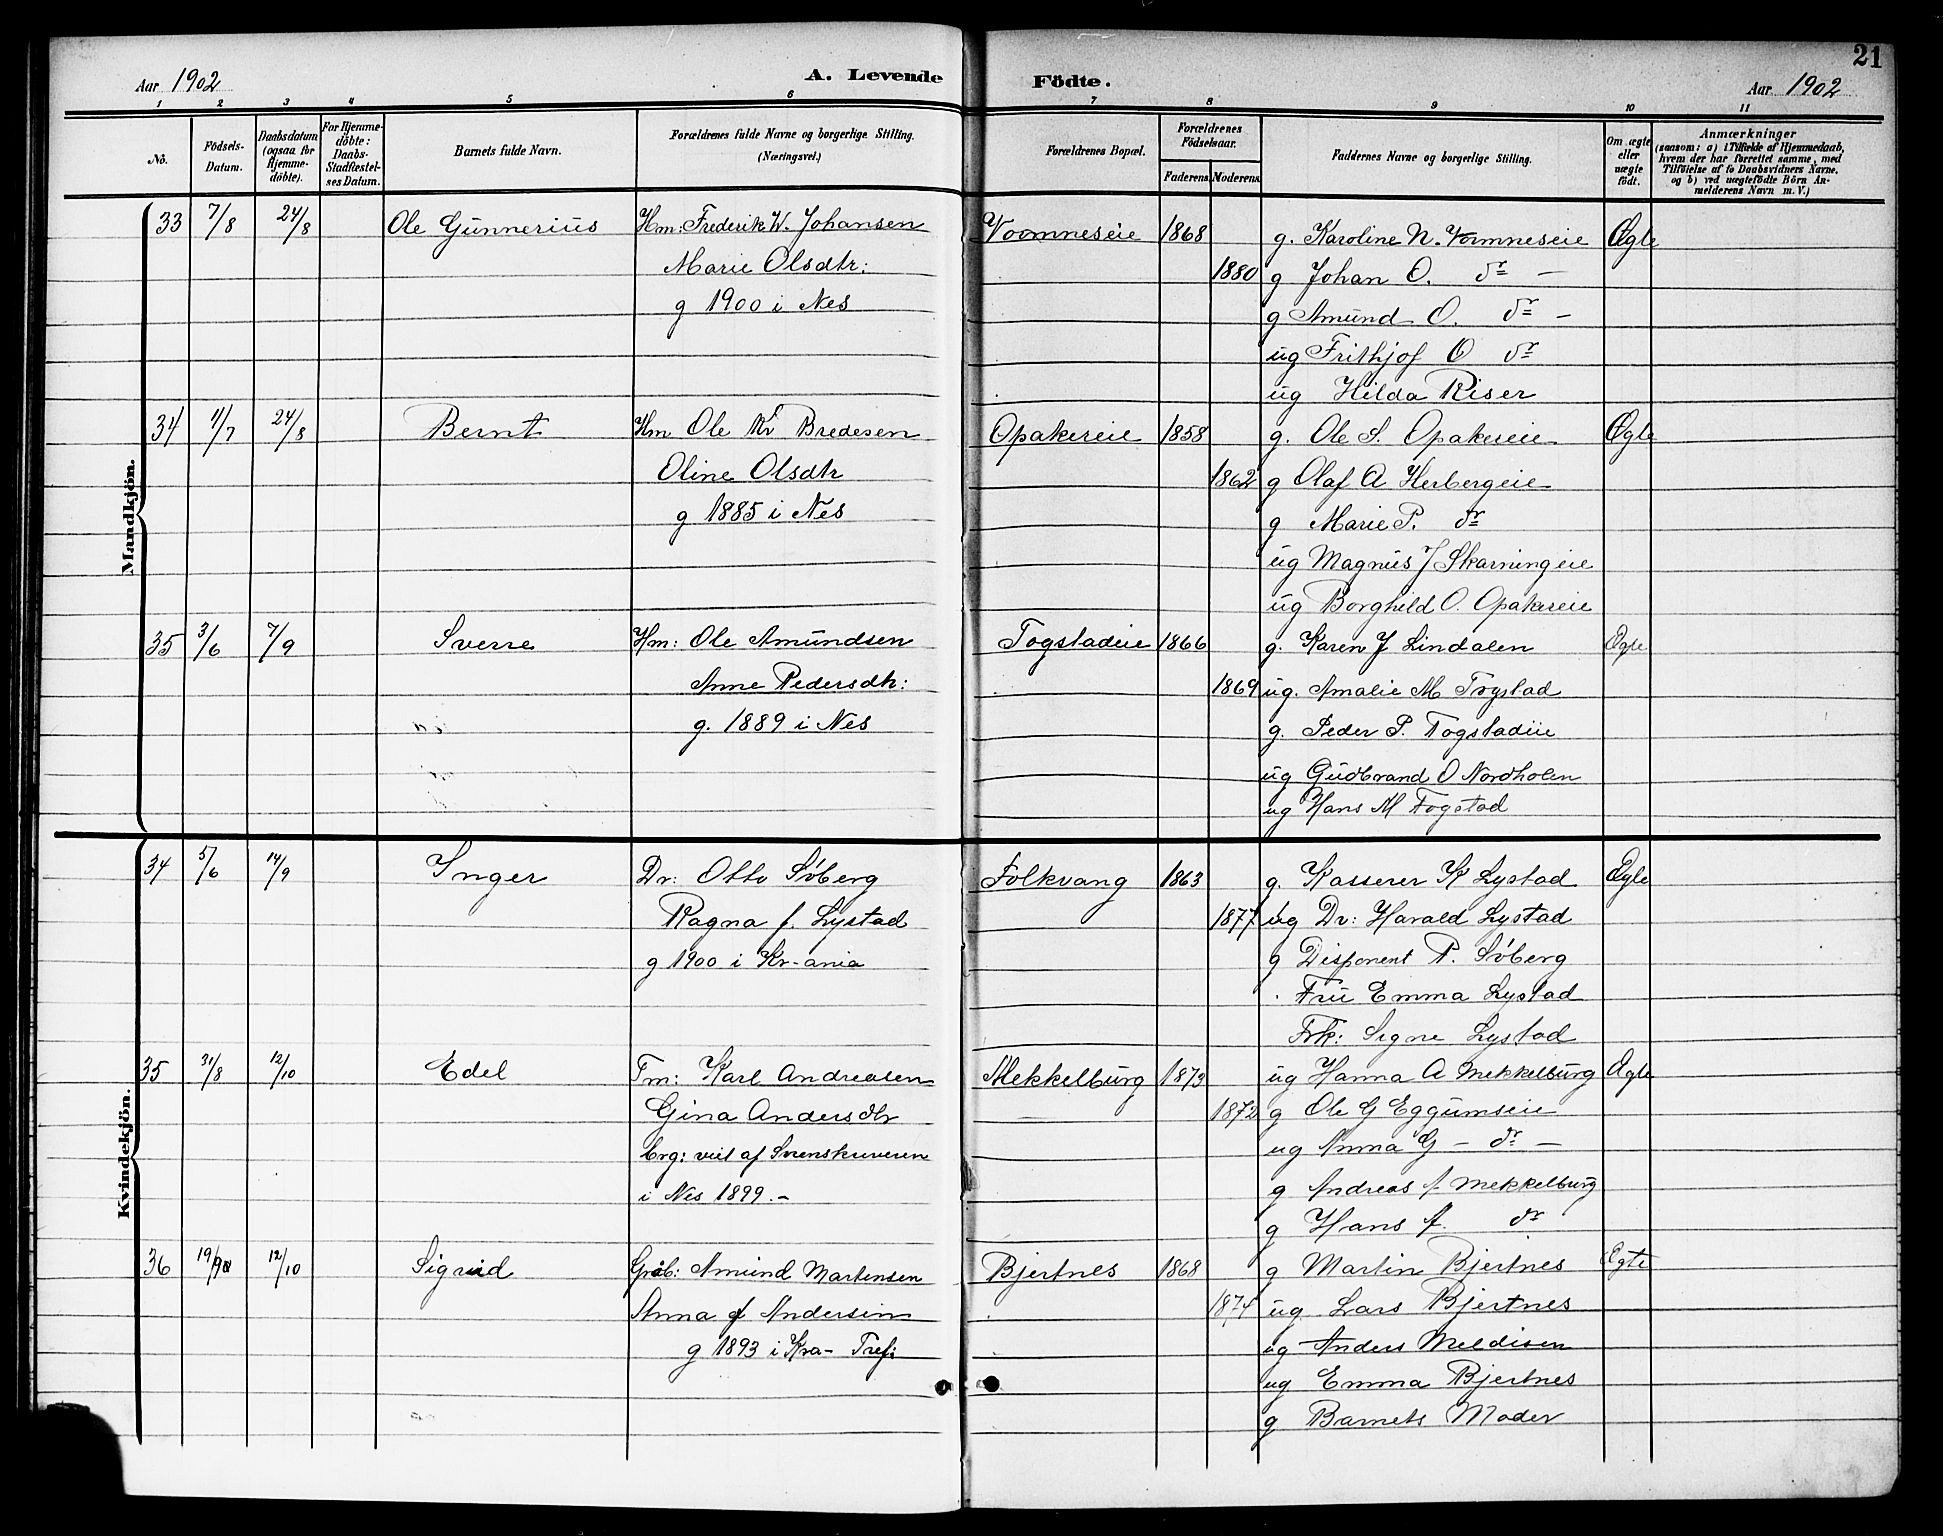 21
Aar 1902 A. Levende Födte. Aar 1902
1 2 3 4 5 6 7 8 9 10 11
No.
Födsels-Datum.
Daabsdatum (ogsaa for Hjemmedöbte).
For Hjemmedöbte: Daabs-Stadfæstelses Datum.
Barnets fulde Navn.
Forældrenes fulde Navne og borgerlige Stilling. (Næringsvei.)
Forældrenes Bopæl.
Forældrenes Födselsaar.
Faderens Moderens
Faddernes Navne og borgerlige Stilling.
Om ægte eller uægte födt.
Anmærkninger
(saasom: a) i Tilfælde af Hjemmedaab, hvem der har forrettet samme, med Tilföielse af to Daabsvidners Navne, og b) ved uægtefödte Börn Anmelderens Navn m. V.)
Mandkjön.
33 7/8 24/8 Ole Gunnerius Hm: Frederik W. Johansen Vormneseie 1868 g. Karoline N. Vormneseie Ægte
Marie Olsdtr: 1880 g Johan O. dr —
g 1900 i Nes g Amund O. dr —
ug Frithjof O dr
ug Hilda Riser
34 1/7 24/8 Bernt Hm Ole Kr Bredesen Opakereie 1858 g. Ole S. Opakereie Ægte
Oline Olsdtr 1862 g Olaf A Herbergeie
g 1885 i Nes g Marie P. dr
ug Magnus J Skarningeie
ug Borghild O. Opakereie
35 3/6 7/9 Sverre Hm: Ole Amundsen Fogstadeie 1866 g. Karen J Lindalen Ægte
Anne Pedersdtr: 1869 ug. Amalie M Fogstad
g. 1889 i Nes g. Peder P. Fogstadeie
ug Gudbrand O Nordholen
ug Hans M Fogstad
Kvindekjön.
34 5/6 14/9 Inger Dr: Otto Söberg Folkvang 1863 g. Kasserer K Lystad Ægte
Ragna f. Lystad 1877 ug Dr: Harald Lystad
g 1900 i Kr-ania g Disponent P. Söberg
Fru Emma Lystad
Frk: Signe Lystad
35 31/8 12/10 Edel Tm: Karl Andreasen Mekkelburg 1873 ug Hanna A Mekkelburg Ægte
Gina Andersdtr 1872 g Ole G Eggumseie
brg: viet af Svenskeveren ug Anna G — dr —
i Nes 1899.— g Andreas A. Mekkelburg
g Hans A. dr
36 19/9 12/10 Sigrid Grdb: Amund Martensen Bjertnes 1868 g Martin Bjertnes Ægte
Anna f Andersen 1874 ug Lars Bjertnes
g 1893 i Kra- Tref: ug Anders Meldisen
ug Emma Bjertnes
g Barnets Moder